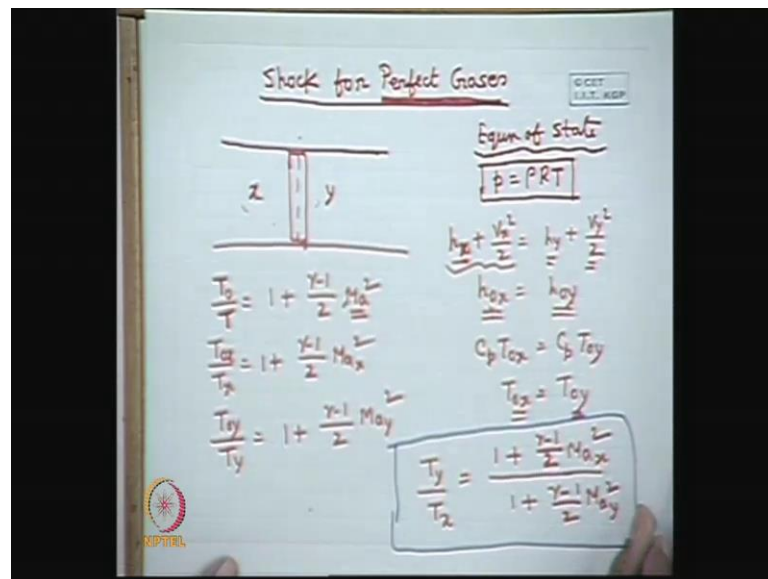 Shock for Perfect Gases
© CET
I.I.T. KGP
x
y
T₀/T = 1 + (γ-1)/2 Ma²
T₀ₓ/Tₓ = 1 + (γ-1)/2 Maₓ²
T₀y/Ty = 1 + (γ-1)/2 May²
Equn of State
p = ρRT
hₓ + Vₓ²/2 = hy + Vy²/2
h₀ₓ = h₀y
Cp T₀ₓ = Cp T₀y
T₀ₓ = T₀y
Ty/Tₓ = (1 + (γ-1)/2 Maₓ²)/(1 + (γ-1)/2 May²)
NPTEL